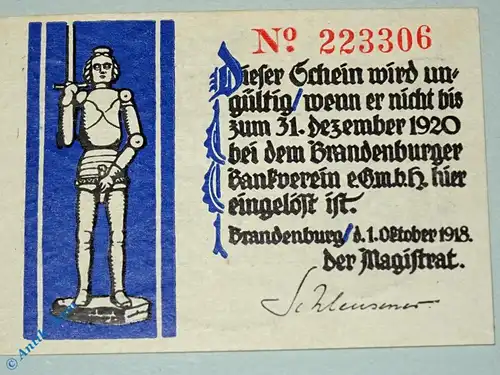 Nº 223306
Dieser Schein wird un=
gültig/wenn er nicht bis
zum 31. Dezember 1920
bei dem Brandenburger
Bankverein e.G.m.b.H. hier
eingelöst ist.
Brandenburg/d.1.Oktober 1918.
Der Magistrat.
Schleusener